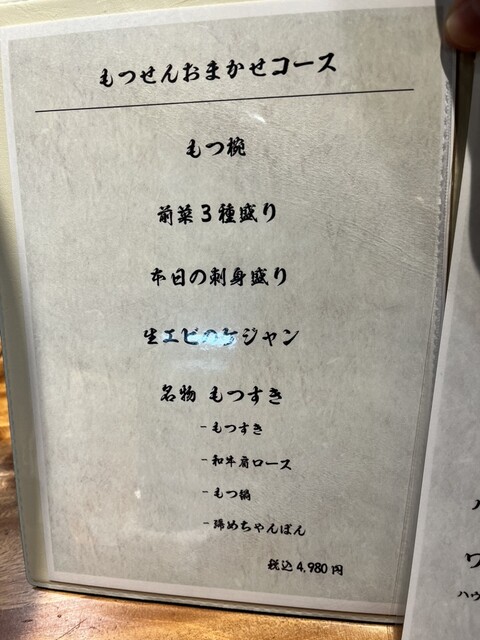 もつせんおまかせコース
もつ椀
前菜3種盛り
本日の刺身盛り
生エビのケジャン
名物 もつすき
-もつすき
-和牛肩ロース
-もつ鍋
-締めちゃんぽん
税込4,980円
ワ
ハウ